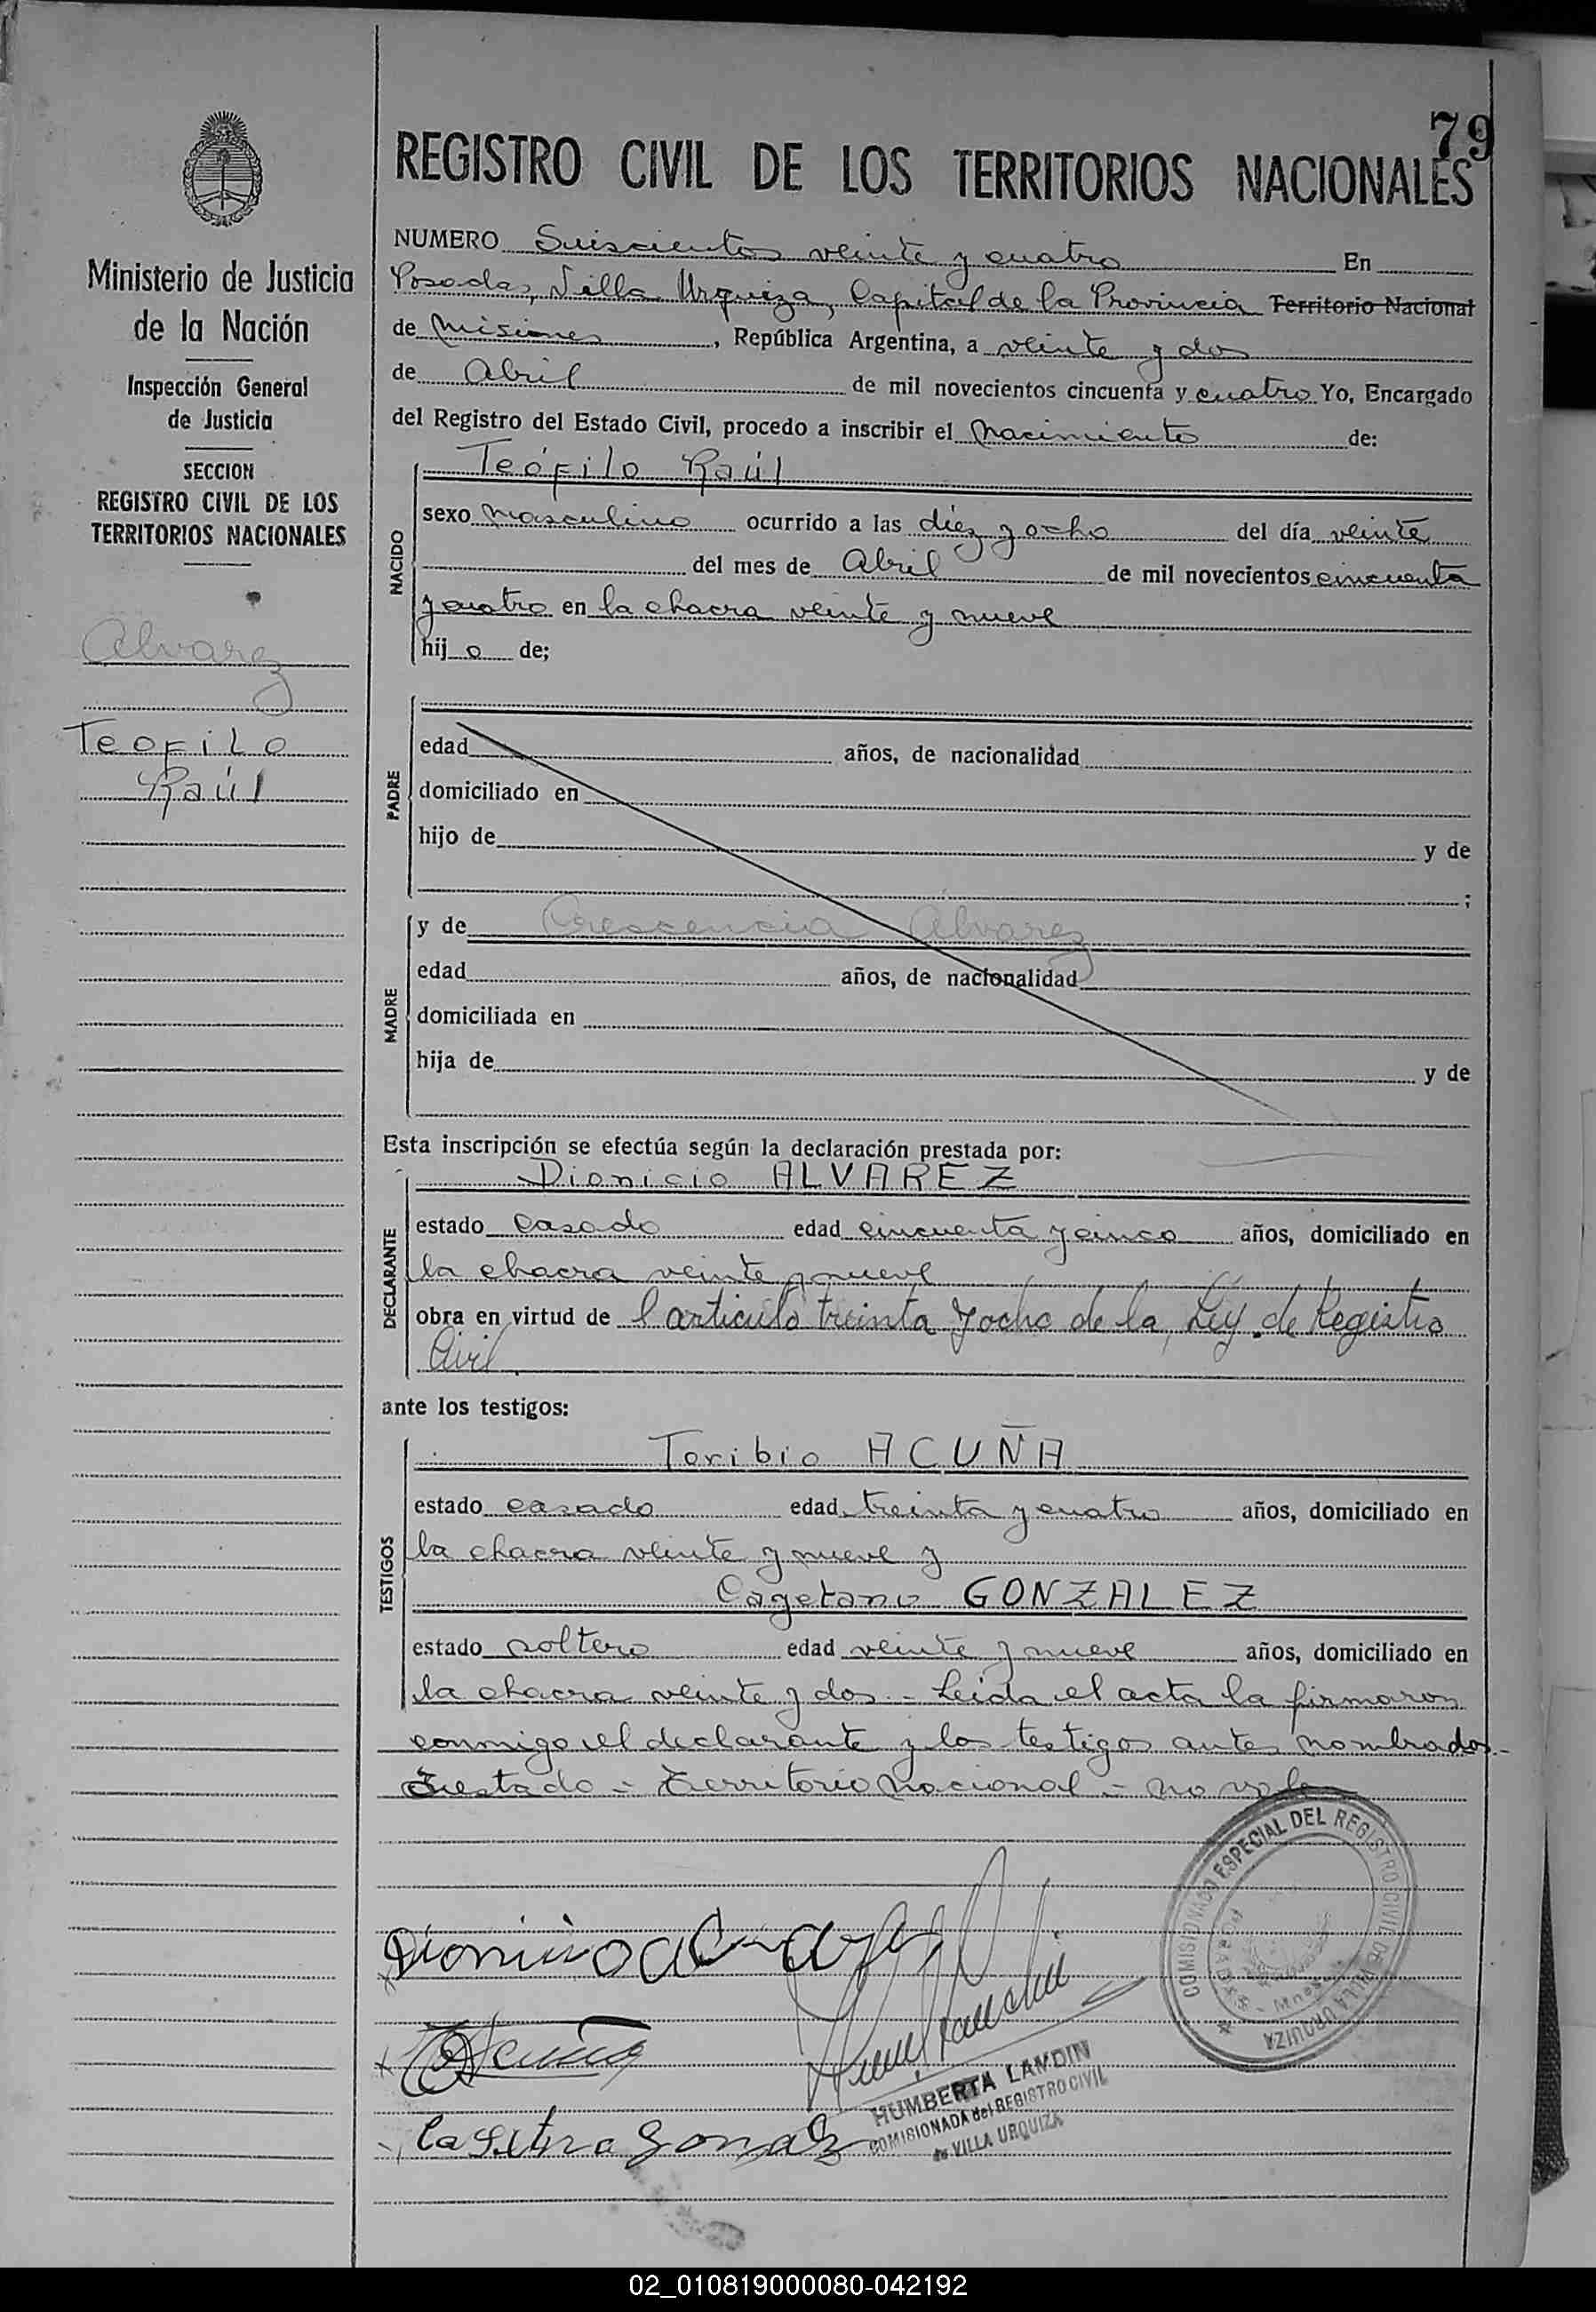 79
REGISTRO CIVIL DE LOS TERRITORIOS NACIONALES
Ministerio de Justicia
de la Nación
Inspección General
de Justicia
SECCION
REGISTRO CIVIL DE LOS
TERRITORIOS NACIONALES
Alvarez
Teofilo
Raúl
NUMERO Seiscientos veinte y cuatro En
Posadas, Villa Urquiza, Capital de la Provincia Territorio Nacional
de Misiones, República Argentina, a veinte y dos
de Abril de mil novecientos cincuenta y cuatro Yo, Encargado
del Registro del Estado Civil, procedo a inscribir el nacimiento de:
NACIDO
Teófilo Raúl
sexo masculino ocurrido a las diez y ocho del día veinte
del mes de Abril de mil novecientos cincuenta
y cuatro en la chacra veinte y nueve
hijo de;
PADRE
edad años, de nacionalidad
domiciliado en
hijo de y de
;
MADRE
y de Crescencia Alvarez
edad años, de nacionalidad
domiciliada en
hija de y de
Esta inscripción se efectúa según la declaración prestada por:
DECLARANTE
Dionicio ALVAREZ
estado casado edad cincuenta y cinco años, domiciliado en
la chacra veinte y nueve
obra en virtud de l articulo treinta y ocho de la Ley de Registro
Civil
ante los testigos:
TESTIGOS
Toribio ACUÑA
estado casado edad treinta y cuatro años, domiciliado en
la chacra veinte y nueve y
Cayetano GONZALEZ
estado soltero edad veinte y nueve años, domiciliado en
la chacra veinte y dos - Leida el acta la firmaron
conmigo el declarante y los testigos antes nombrados -
Testado - Territorio Nacional - no vale
COMISIONADO ESPECIAL DEL REGISTRO CIVIL DE VILLA URQUIZA
POSADAS - Mnes
HUMBERTA LANDIN
COMISIONADA del REGISTRO CIVIL
de VILLA URQUIZA
02_010819000080-042192